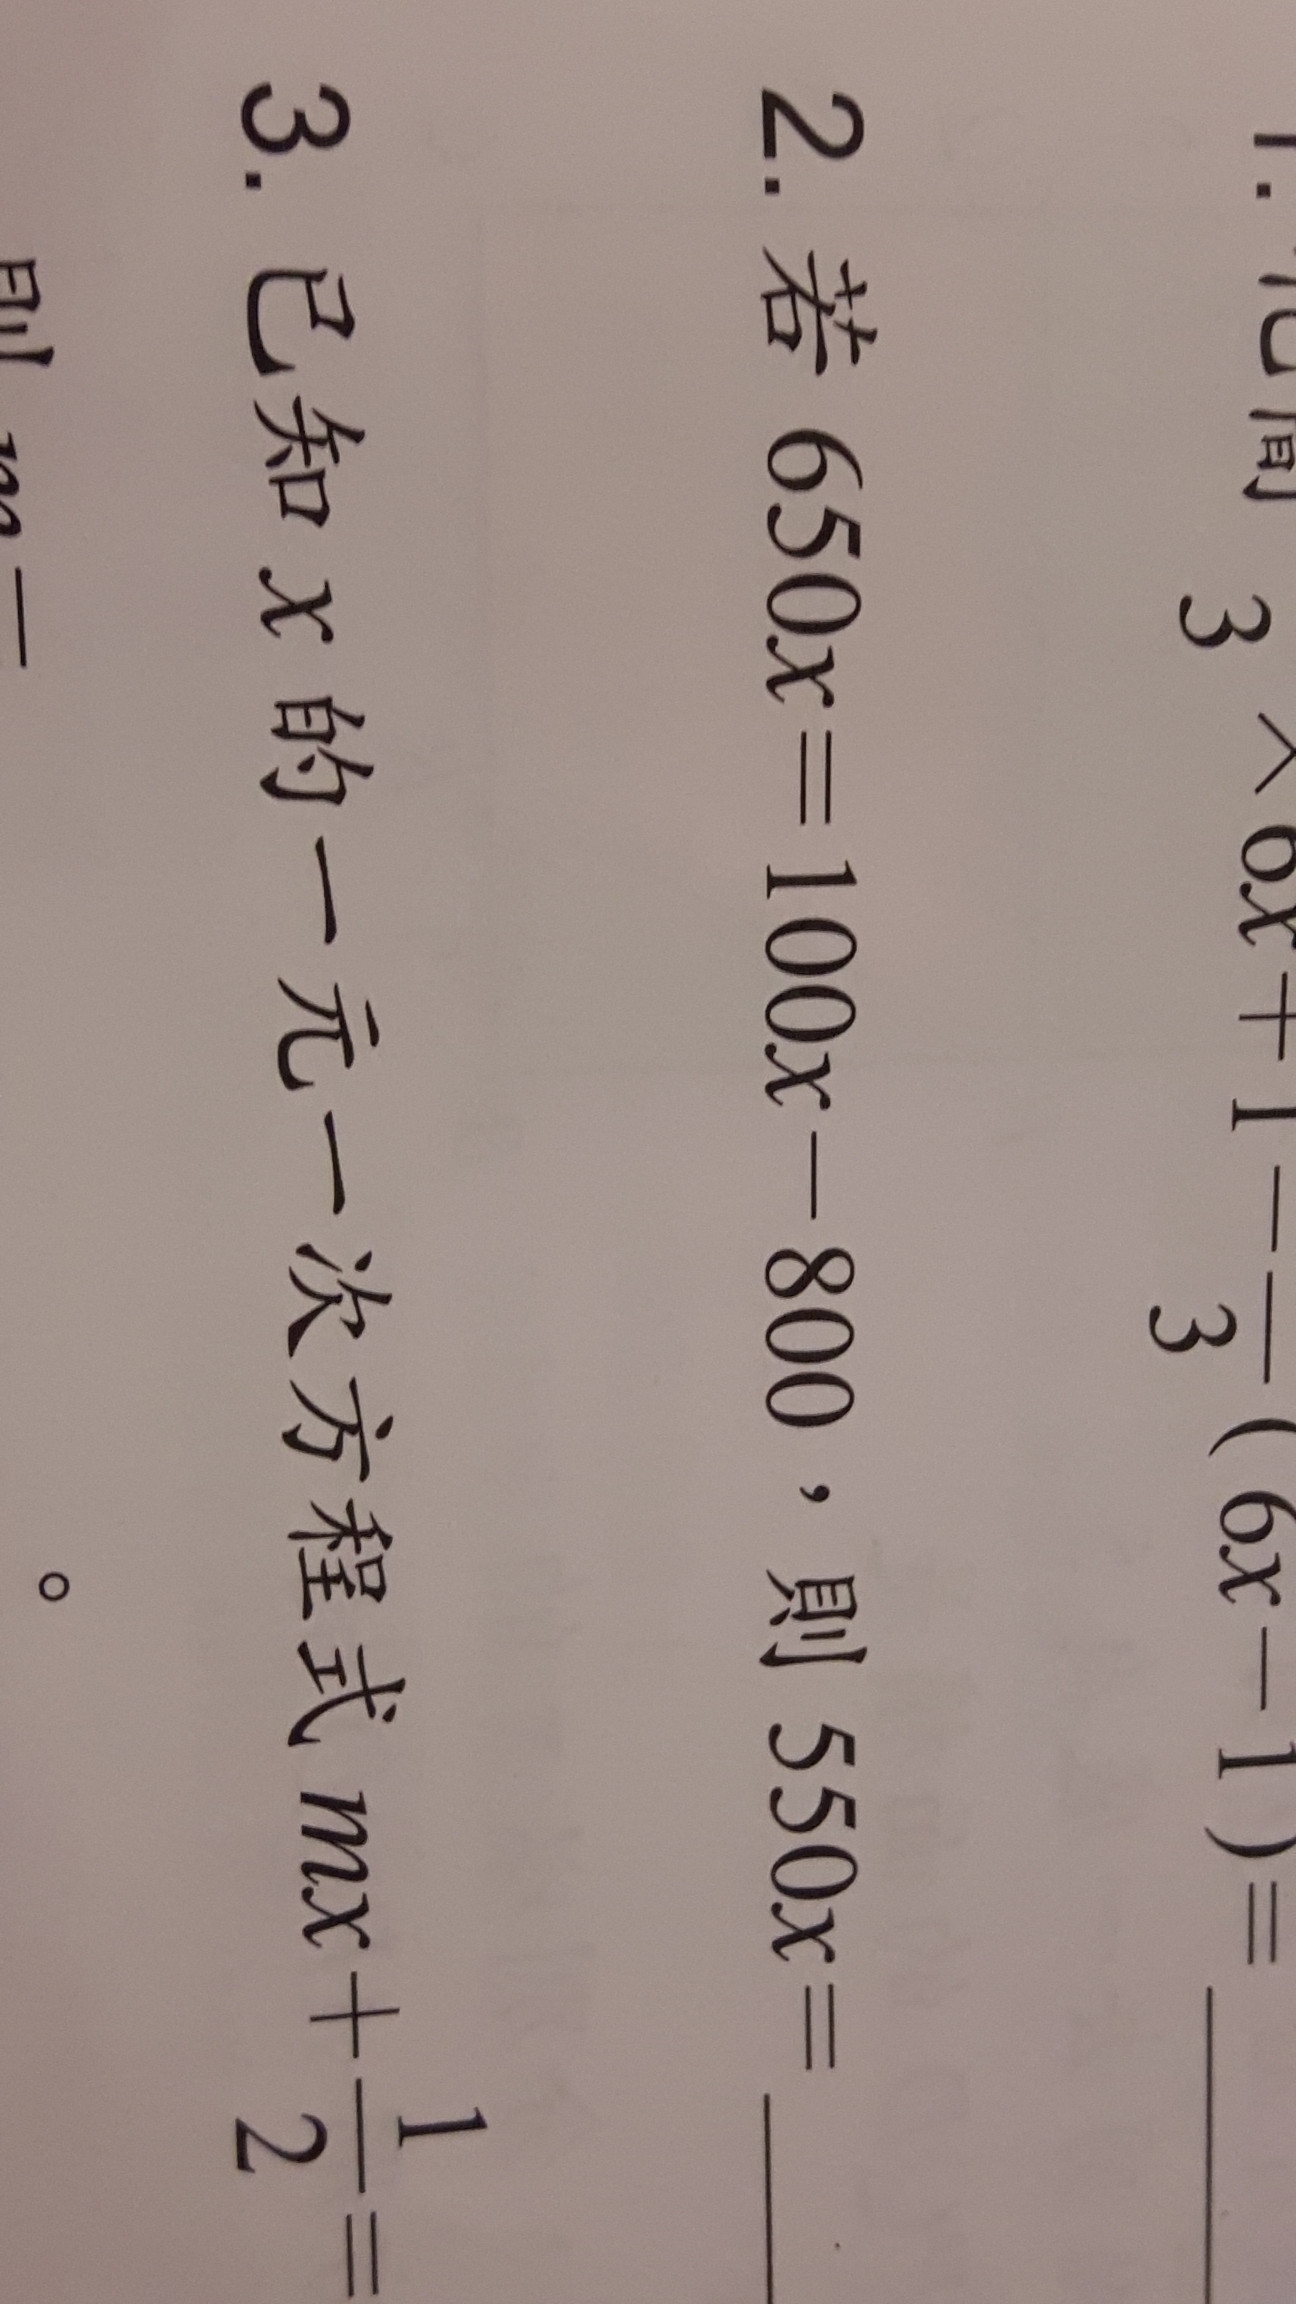 1. 化簡 3 × 6x + 1 − —3 (6x − 1) = ____
2. 若 650x = 100x − 800，則 550x = ____
3. 已知 x 的一元一次方程式 mx + 1/2 =
則 m = 。